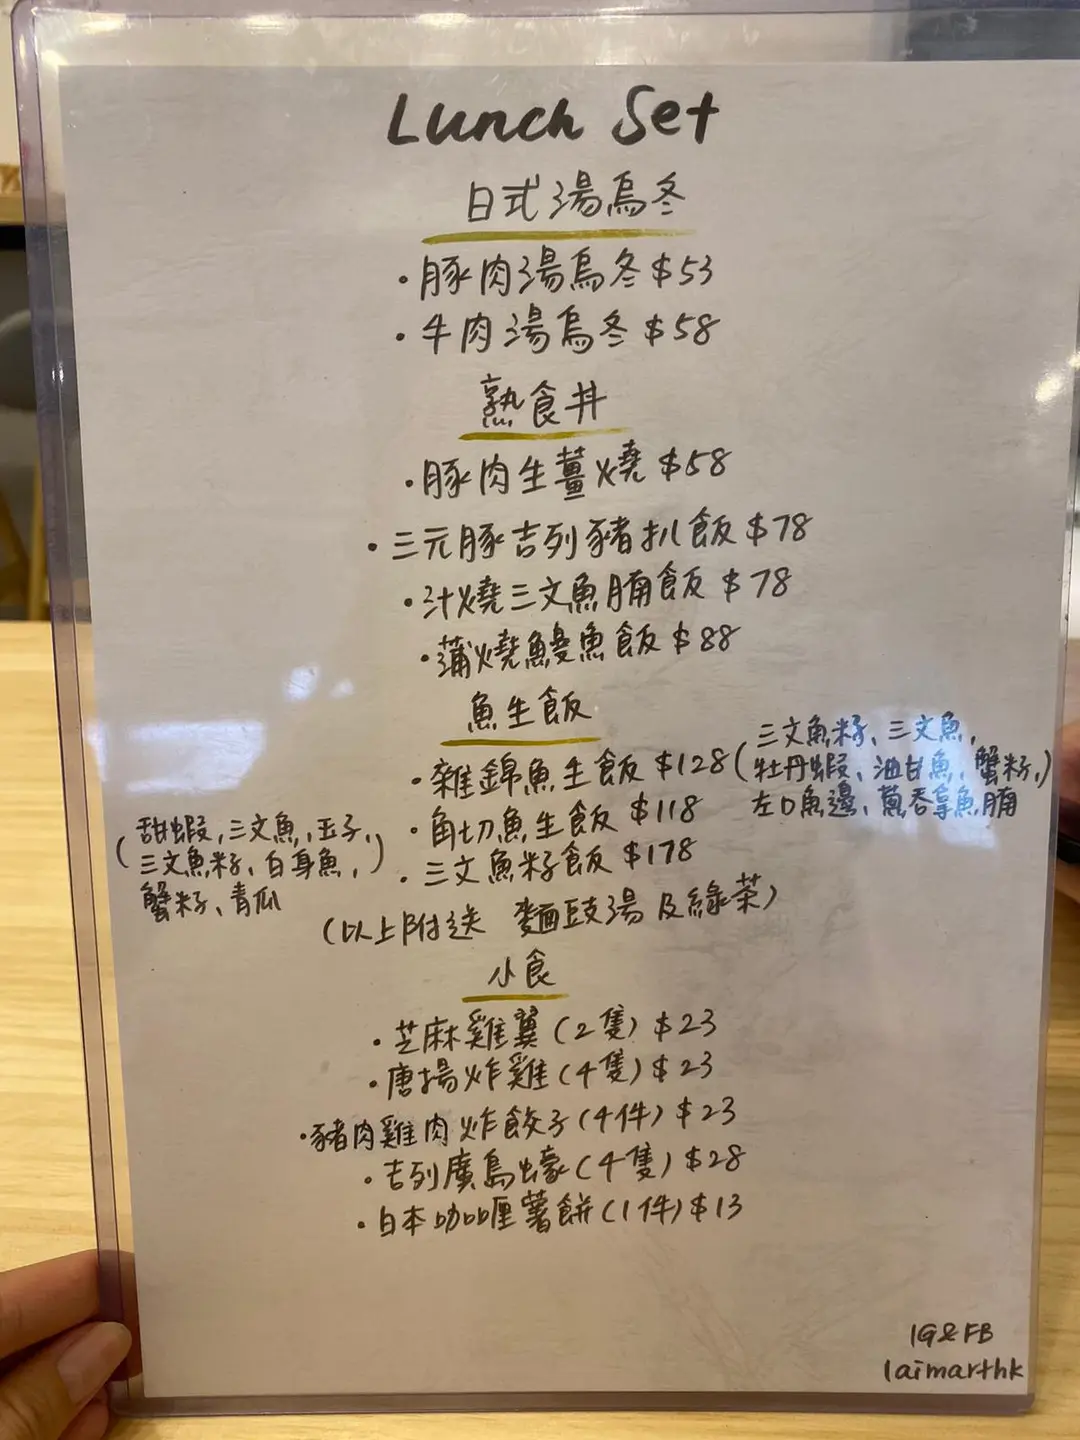 Lunch Set
日式湯烏冬
・豚肉湯烏冬 $53
・牛肉湯烏冬 $58
熟食丼
・豚肉生薑燒 $58
・三元豚吉列豬扒飯 $78
・汁燒三文魚腩飯 $78
・蒲燒鰻魚飯 $88
魚生飯
・雜錦魚生飯 $128
(三文魚籽、三文魚、
牡丹蝦、油甘魚、蟹籽、)
左口魚邊、蔥吞拿魚腩
・角切魚生飯 $118
(甜蝦、三文魚、玉子、
三文魚籽、白身魚、)
蟹籽、青瓜
・三文魚籽飯 $178
(以上附送 麵豉湯及綠茶)
小食
・芝麻雞翼 (2隻) $23
・唐揚炸雞 (4隻) $23
・豬肉雞肉炸餃子 (4件) $23
・吉列廣島蠔 (4隻) $28
・日本咖喱薯餅 (1件) $13
IG&FB
laimarthk